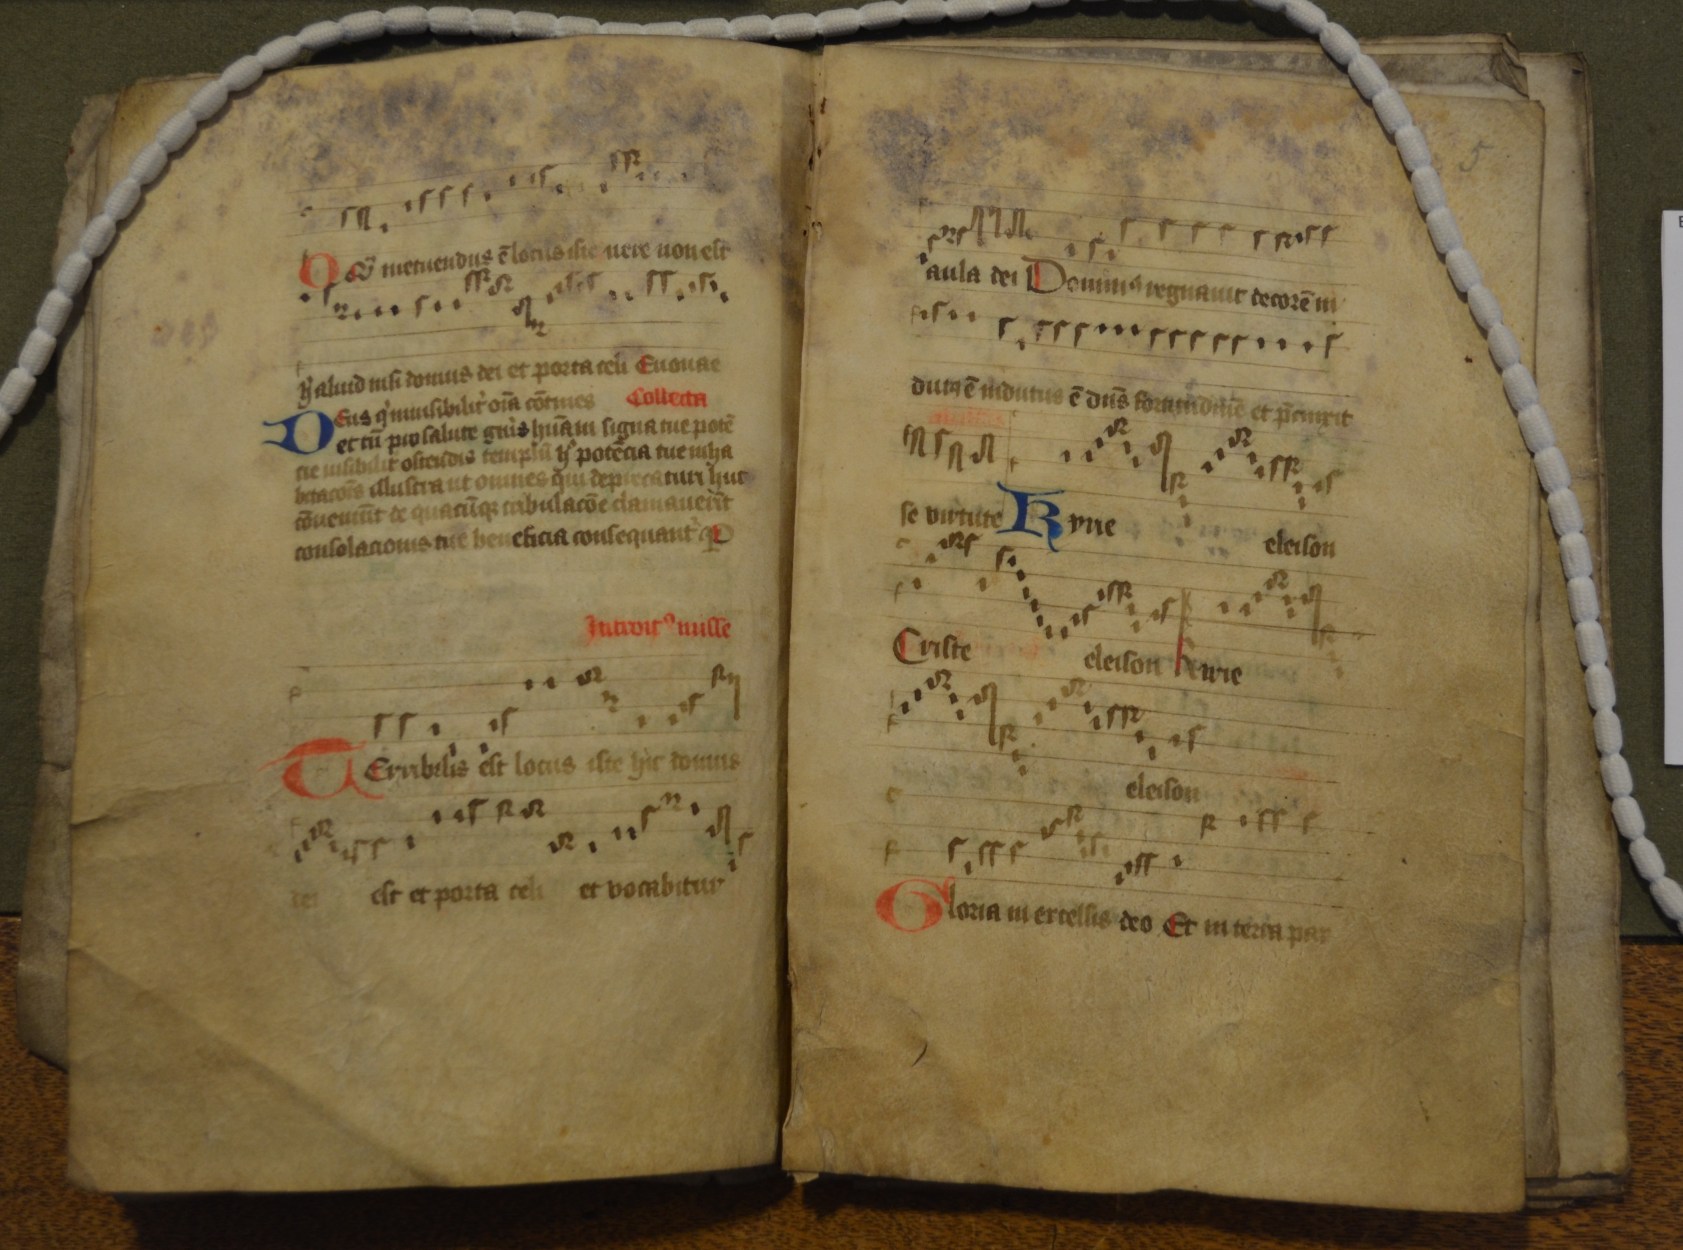 O Q̄ metuendus ē locus iste vere non est
h̓ aliud nisi domus dei et porta celi Euouae
Collecta
DEus q̓ inuisibilit̓ oīa cōtines
et tn̄ pro salute gn̓is hūani signa tue potē
cie uisibilit̓ ostendis templū h̓ potēcia tue inha
bitacōis illustra ut omnes qui deprecaturi huc
cōueniūt de quacūq; tribulacōe clamauerīt
consolacionis tue beneficia consequant̓ P
Introit᷒ misse
TErribilis est locus iste hic domus
dei est et porta celi et vocabitur
5
aula dei Domin᷒ regnauit decorē in
dutus ē indutus ē dn̄s fortitudinē et p̄cinxit
se virtute Kyrie eleison
Criste eleison kyrie
eleison
Gloria in excelsis deo Et in terra pax